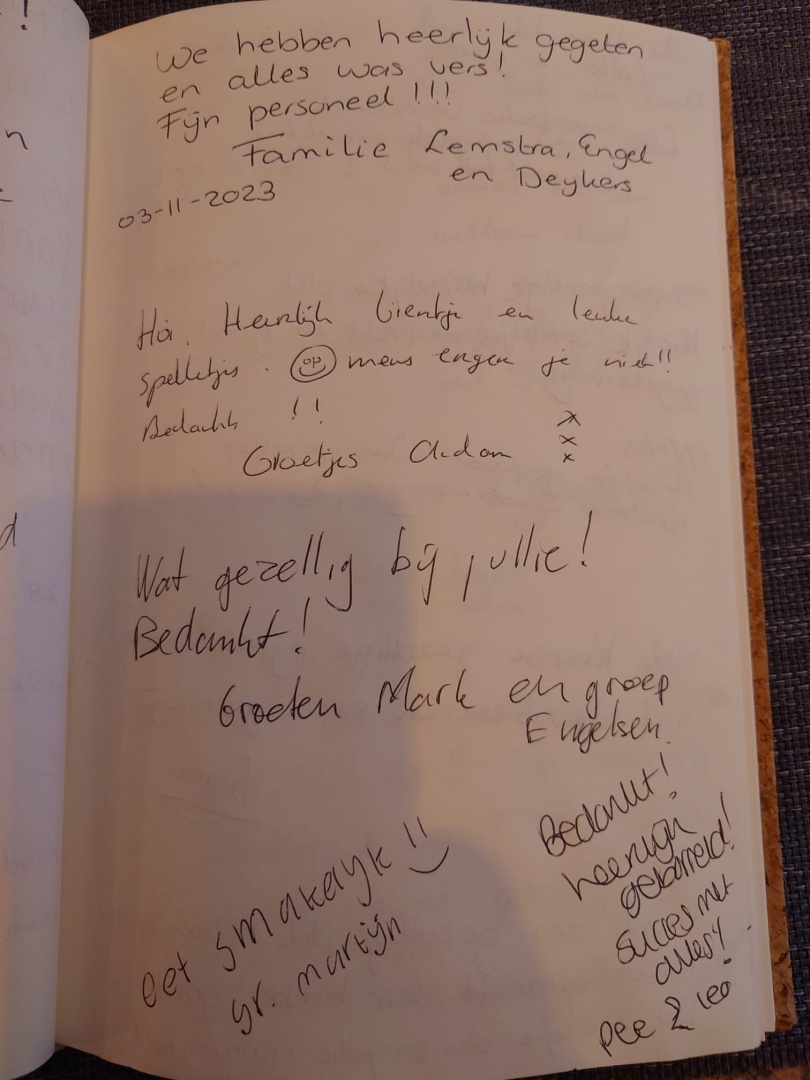 We hebben heerlijk gegeten
en alles was vers!
Fijn personeel !!!
Familie Lemstra, Engel
en Deykers
03-11-2023
Hoi. Heerlijk bientje en leuke
spelletjes. op mens erger je niet!!
Bedankt !!
Groetjes x
x
x
Wat gezellig bij jullie!
Bedankt!
Groeten Mark en groep
Engelsen.
Oet smakelijk !!
gr. martijn
Bedankt!
heerlijk
geborreld!
succes met
alles!
pee & leo